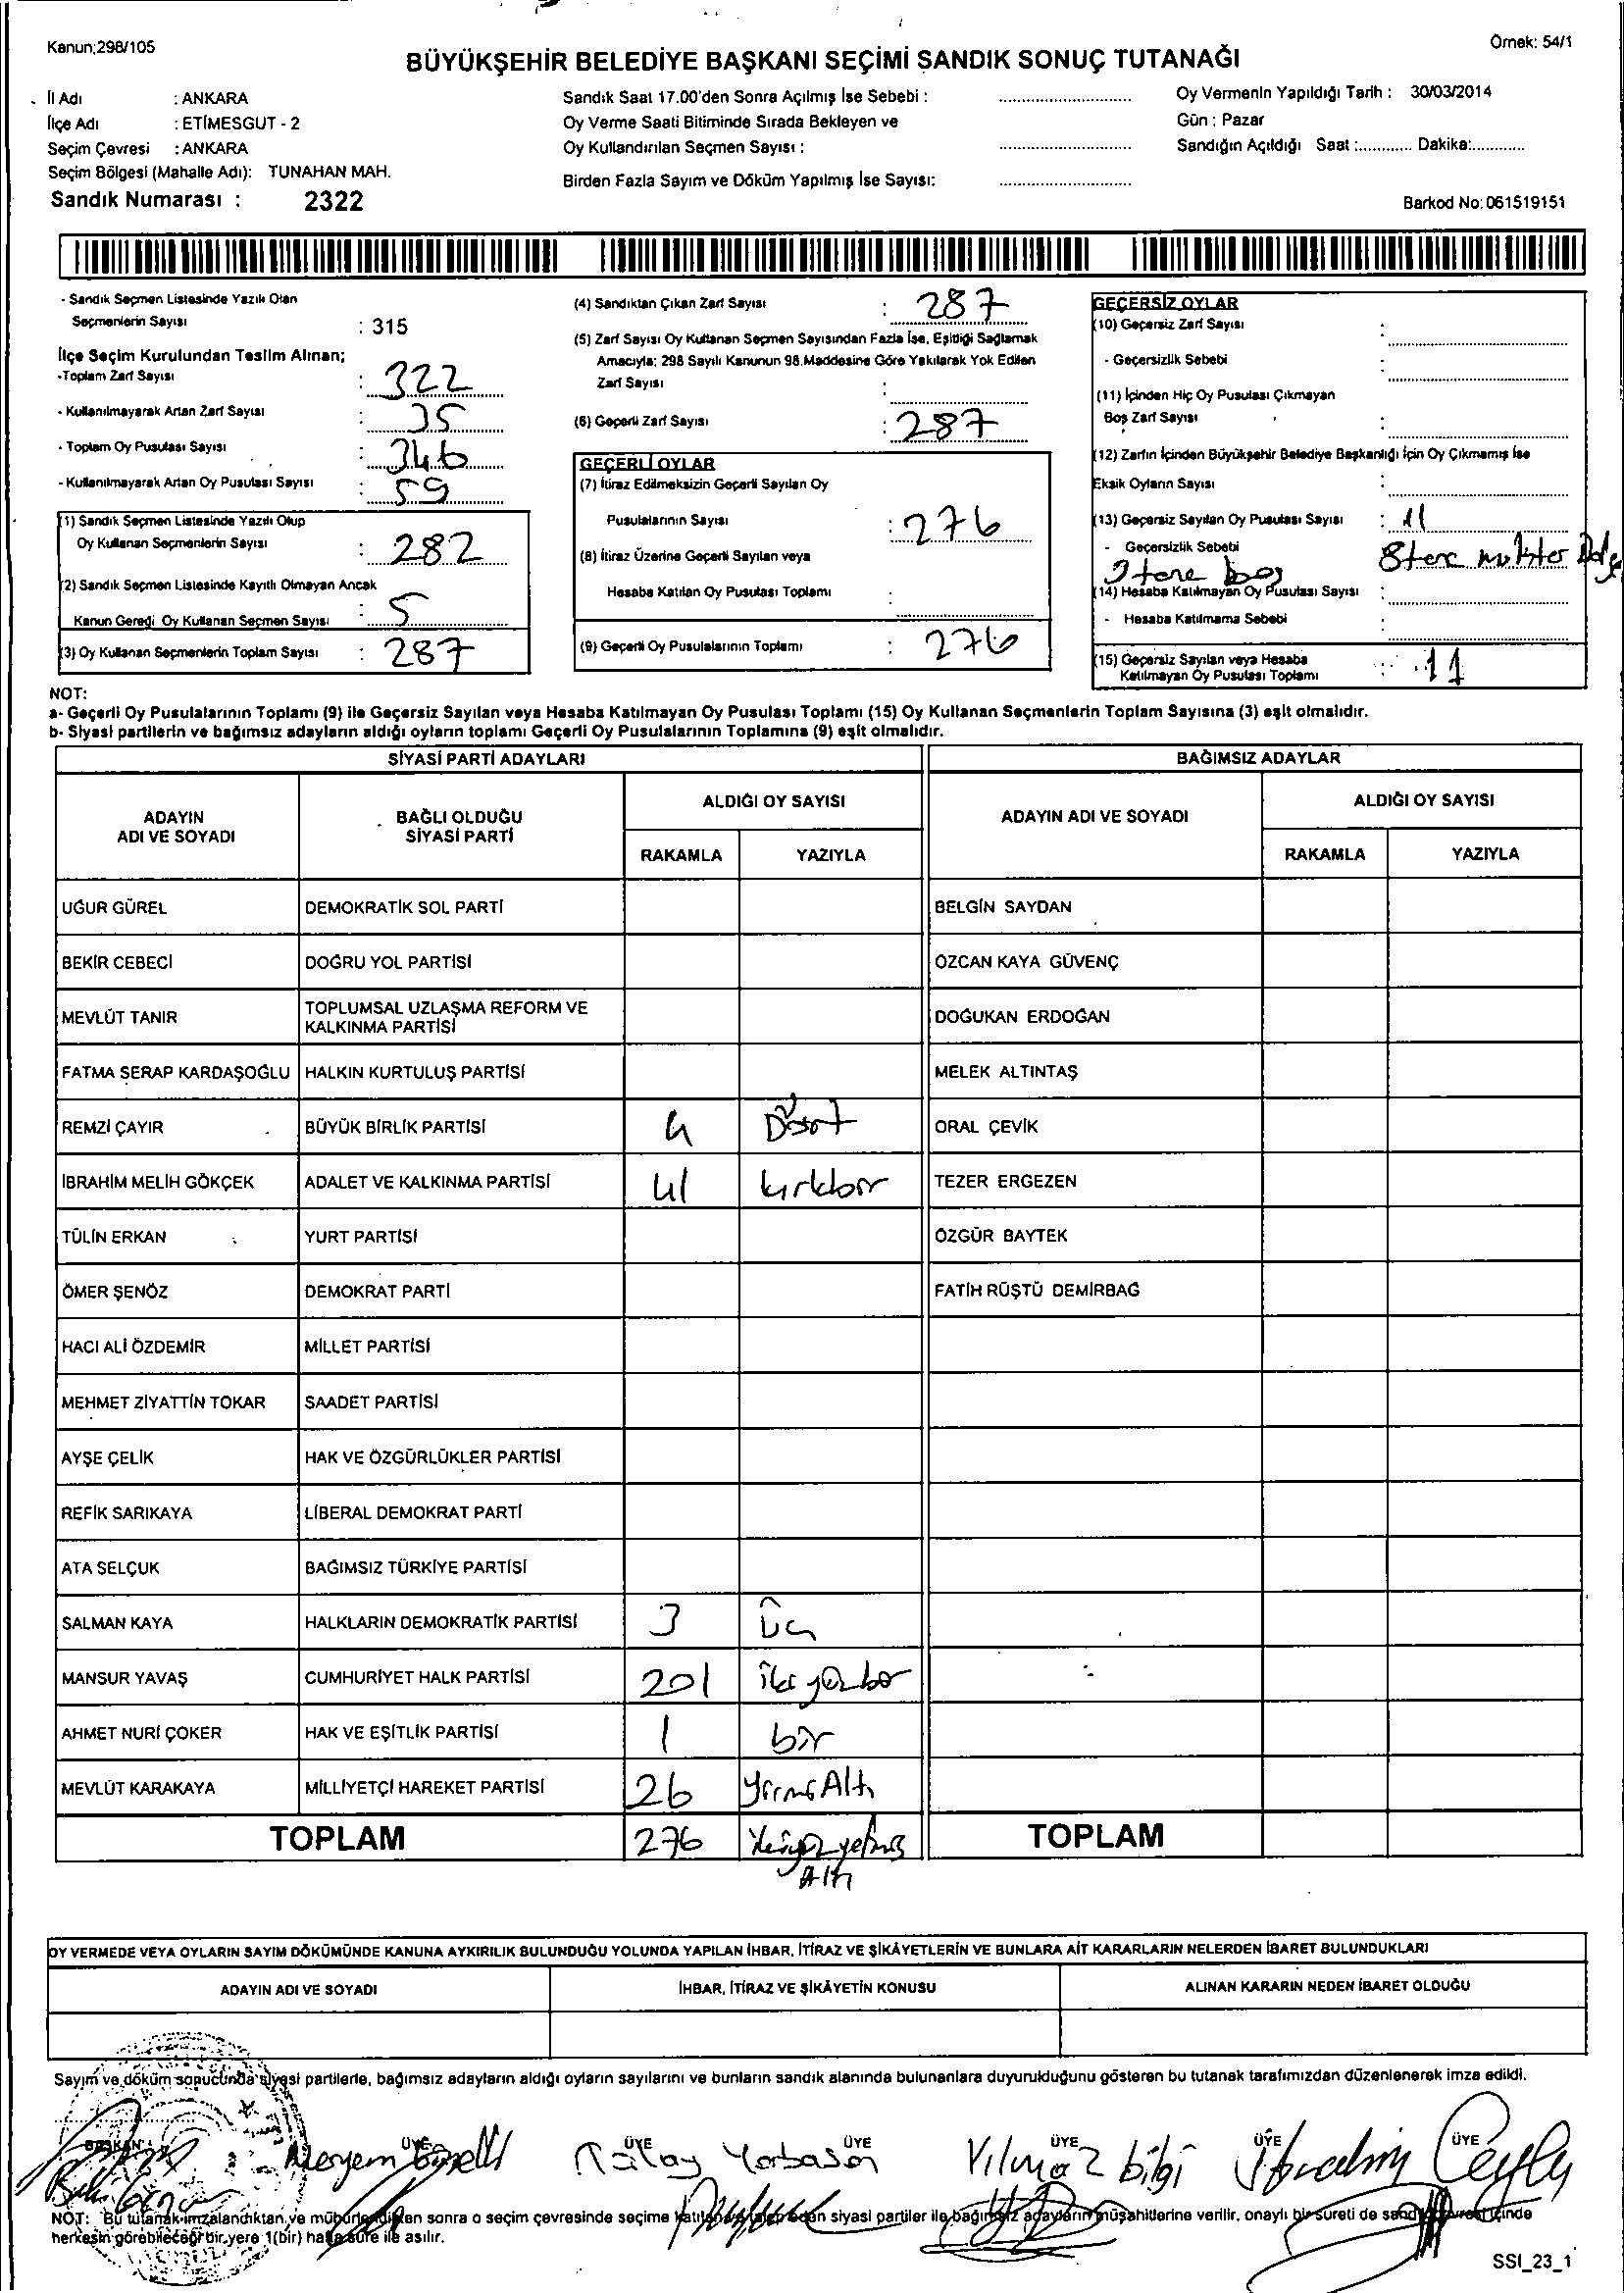 Kanun;298/105
Örnek: 54/1
BÜYÜKŞEHİR BELEDİYE BAŞKANI SEÇİMİ SANDIK SONUÇ TUTANAĞI
İl Adı : ANKARA
İlçe Adı : ETİMESGUT - 2
Seçim Çevresi : ANKARA
Seçim Bölgesi (Mahalle Adı): TUNAHAN MAH.
Sandık Numarası : 2322
Sandık Saat 17.00'den Sonra Açılmış İse Sebebi :
Oy Verme Saati Bitiminde Sırada Bekleyen ve
Oy Kullandırılan Seçmen Sayısı :
Birden Fazla Sayım ve Döküm Yapılmış İse Sayısı:
Oy Vermenin Yapıldığı Tarih : 30/03/2014
Gün : Pazar
Sandığın Açıldığı Saat :............ Dakika:............
Barkod No: 061519151
- Sandık Seçmen Listesinde Yazılı Olan
Seçmenlerin Sayısı : 315
İlçe Seçim Kurulundan Teslim Alınan;
-Toplam Zarf Sayısı : 322
- Kullanılmayarak Artan Zarf Sayısı : 35
- Toplam Oy Pusulası Sayısı : 346
- Kullanılmayarak Artan Oy Pusulası Sayısı : 59
(1) Sandık Seçmen Listesinde Yazılı Olup
Oy Kullanan Seçmenlerin Sayısı : 282
(2) Sandık Seçmen Listesinde Kayıtlı Olmayan Ancak
Kanun Gereği Oy Kullanan Seçmen Sayısı : 5
(3) Oy Kullanan Seçmenlerin Toplam Sayısı : 287
(4) Sandıktan Çıkan Zarf Sayısı : 287
(5) Zarf Sayısı Oy Kullanan Seçmen Sayısından Fazla İse, Eşitliği Sağlamak
Amacıyla; 298 Sayılı Kanunun 98.Maddesine Göre Yakılarak Yok Edilen
Zarf Sayısı :
(6) Geçerli Zarf Sayısı : 287
GEÇERLİ OYLAR
(7) İtiraz Edilmeksizin Geçerli Sayılan Oy
Pusulalarının Sayısı : 276
(8) İtiraz Üzerine Geçerli Sayılan veya
Hesaba Katılan Oy Pusulası Toplamı :
(9) Geçerli Oy Pusulalarının Toplamı : 276
GEÇERSİZ OYLAR
(10) Geçersiz Zarf Sayısı :
- Geçersizlik Sebebi :
(11) İçinden Hiç Oy Pusulası Çıkmayan
Boş Zarf Sayısı :
(12) Zarfın İçinden Büyükşehir Belediye Başkanlığı İçin Oy Çıkmamış İse
Eksik Oyların Sayısı :
(13) Geçersiz Sayılan Oy Pusulası Sayısı : 11
- Geçersizlik Sebebi 8 tane
3 tane boş
(14) Hesaba Katılmayan Oy Pusulası Sayısı :
- Hesaba Katılmama Sebebi :
(15) Geçersiz Sayılan veya Hesaba
Katılmayan Oy Pusulası Toplamı : 11
NOT:
a- Geçerli Oy Pusulalarının Toplamı (9) ile Geçersiz Sayılan veya Hesaba Katılmayan Oy Pusulası Toplamı (15) Oy Kullanan Seçmenlerin Toplam Sayısına (3) eşit olmalıdır.
b- Siyasi partilerin ve bağımsız adayların aldığı oyların toplamı Geçerli Oy Pusulalarının Toplamına (9) eşit olmalıdır.
SİYASİ PARTİ ADAYLARI
BAĞIMSIZ ADAYLAR
ADAYIN
ADI VE SOYADI
BAĞLI OLDUĞU
SİYASİ PARTİ
ALDIĞI OY SAYISI
RAKAMLA YAZIYLA
ADAYIN ADI VE SOYADI
ALDIĞI OY SAYISI
RAKAMLA YAZIYLA
UĞUR GÜREL DEMOKRATİK SOL PARTİ BELGİN SAYDAN
BEKİR CEBECİ DOĞRU YOL PARTİSİ ÖZCAN KAYA GÜVENÇ
MEVLÜT TANIR TOPLUMSAL UZLAŞMA REFORM VE
KALKINMA PARTİSİ DOĞUKAN ERDOĞAN
FATMA SERAP KARDAŞOĞLU HALKIN KURTULUŞ PARTİSİ MELEK ALTINTAŞ
REMZİ ÇAYIR BÜYÜK BİRLİK PARTİSİ 4 Dört ORAL ÇEVİK
İBRAHİM MELİH GÖKÇEK ADALET VE KALKINMA PARTİSİ 41 kırkbir TEZER ERGEZEN
TÜLİN ERKAN YURT PARTİSİ ÖZGÜR BAYTEK
ÖMER ŞENÖZ DEMOKRAT PARTİ FATİH RÜŞTÜ DEMİRBAĞ
HACI ALİ ÖZDEMİR MİLLET PARTİSİ
MEHMET ZİYATTİN TOKAR SAADET PARTİSİ
AYŞE ÇELİK HAK VE ÖZGÜRLÜKLER PARTİSİ
REFİK SARIKAYA LİBERAL DEMOKRAT PARTİ
ATA SELÇUK BAĞIMSIZ TÜRKİYE PARTİSİ
SALMAN KAYA HALKLARIN DEMOKRATİK PARTİSİ 3 üç
MANSUR YAVAŞ CUMHURİYET HALK PARTİSİ 201 iki yüz bir
AHMET NURİ ÇOKER HAK VE EŞİTLİK PARTİSİ 1 bir
MEVLÜT KARAKAYA MİLLİYETÇİ HAREKET PARTİSİ 26 yirmi Altı
TOPLAM 276 ikiyüz yetmiş
Altı
TOPLAM
OY VERMEDE VEYA OYLARIN SAYIM DÖKÜMÜNDE KANUNA AYKIRILIK BULUNDUĞU YOLUNDA YAPILAN İHBAR, İTİRAZ VE ŞİKÂYETLERİN VE BUNLARA AİT KARARLARIN NELERDEN İBARET BULUNDUKLARI
ADAYIN ADI VE SOYADI İHBAR, İTİRAZ VE ŞİKÂYETİN KONUSU ALINAN KARARIN NEDEN İBARET OLDUĞU
Sayım ve döküm sonucunda siyasi partilerle, bağımsız adayların aldığı oyların sayılarını ve bunların sandık alanında bulunanlara duyurulduğunu gösteren bu tutanak tarafımızdan düzenlenerek imza edildi.
BAŞKAN ÜYE ÜYE ÜYE ÜYE ÜYE ÜYE
Meryem Yılmaz bilgi İbrahim
NOT: Bu tutanak imzalandıktan ve mühürlendikten sonra o seçim çevresinde seçime katılan siyasi partiler ile bağımsız adayların müşahitlerine verilir. onaylı bir sureti de sandık çevresi içinde
herkesin görebileceği bir yere 1(bir) hafta süre ile asılır.
SSI_23_1